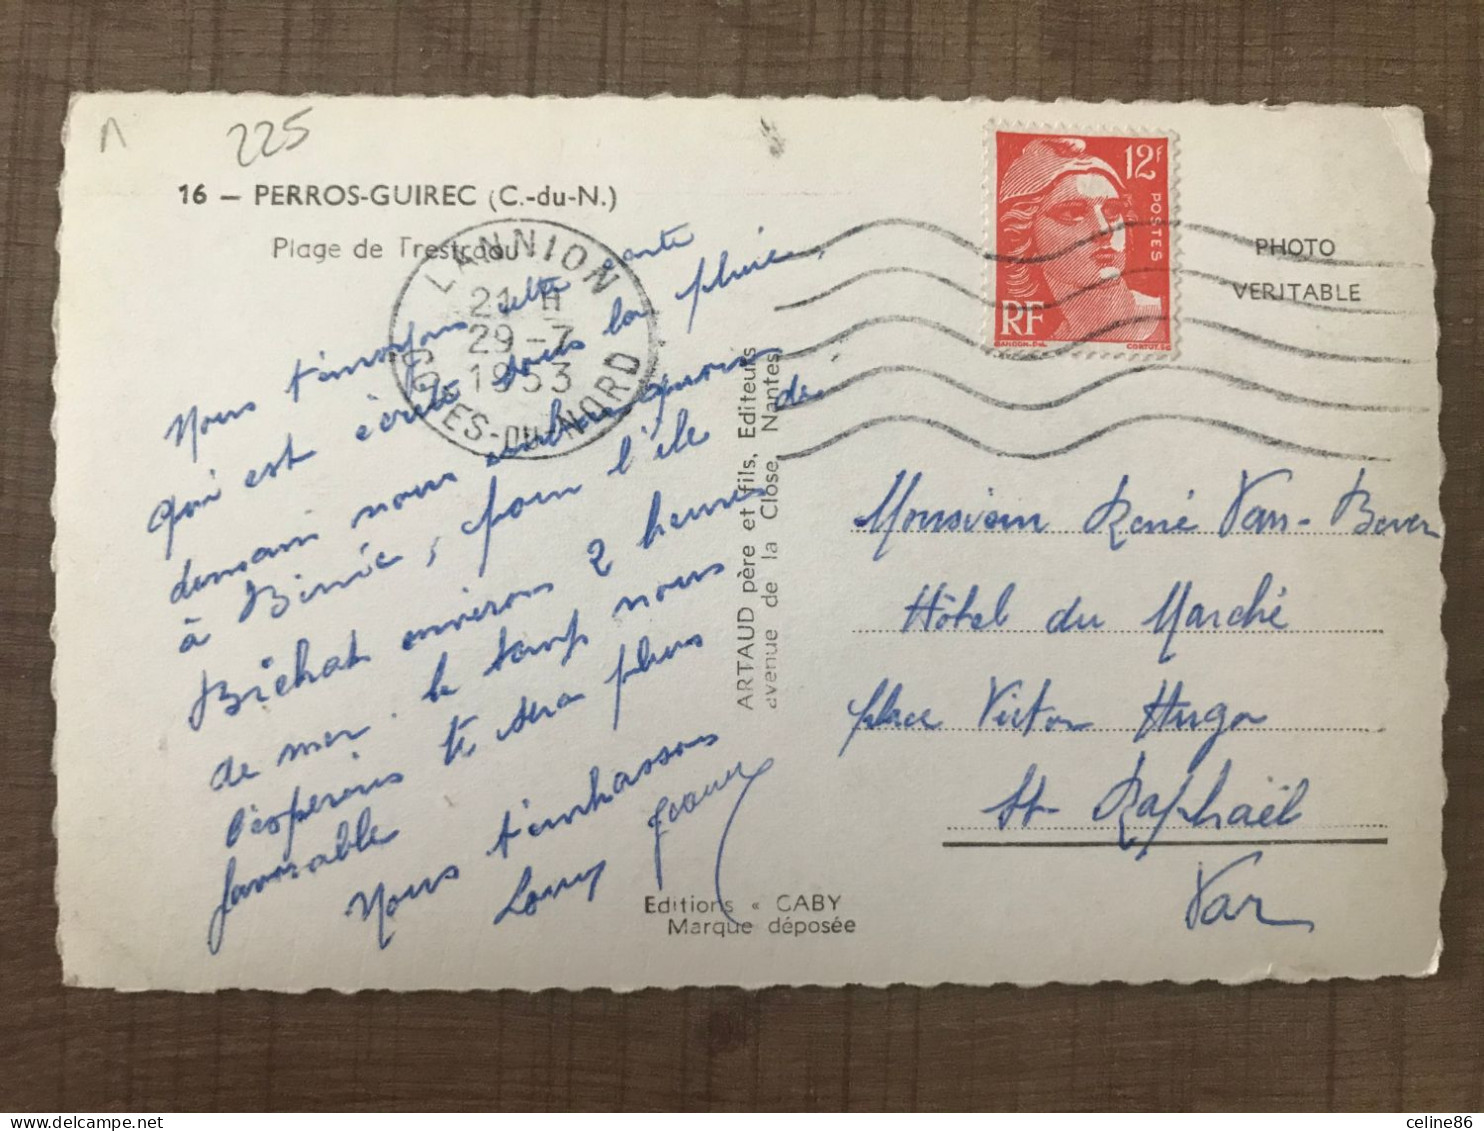 225
16 — PERROS-GUIREC (C.-du-N.)
Plage de Trestraou
LANNION
21 H
29-7
1953
CÔTES-DU-NORD
12F
POSTES
RF
GANDON-DEL.
CORTOT.SC
PHOTO
VERITABLE
Nous t'envoyons cette carte
qui est écrite sous la pluie,
demain nous
à Binic, pour l'île de
Bréhat environs 2 heures
de mer. le temps nous
l'espérons te sera plus
favorable
Nous t'embrassons
ARTAUD père et fils, Editeurs
avenue de la Close, Nantes
Monsieur René Van-Bever
Hôtel du Marché
place Victor Hugo
St Raphaël
Var
Editions « GABY
Marque déposée
celine86